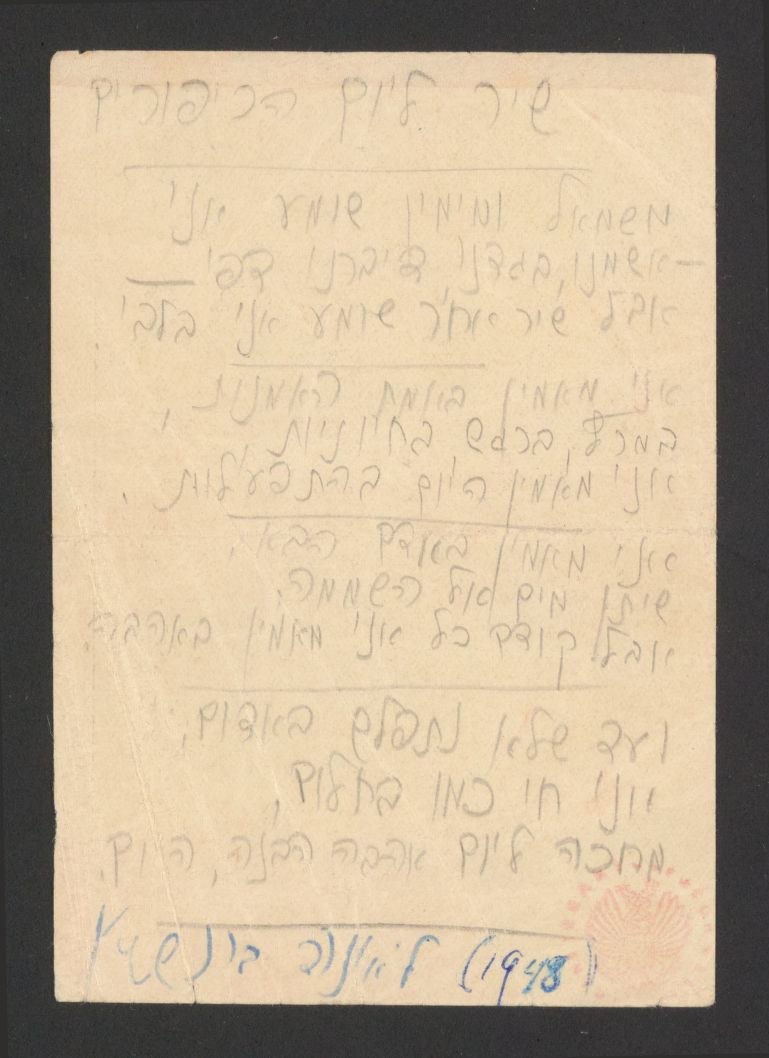 שיר ליום הכיפורים
משמאל ומימין שומע אני
— אשמנו, בגדנו, דיברנו דפי —
אבל שיר אחר שומע אני בלבי.
אני מאמין באמת האמנות,
במרץ, ברגש, בחיוניות
אני מאמין היום בהתפעלות.
אני מאמין באדם הבא,
שיתן מים אל השממה,
אבל קודם כל אני מאמין באהבה.
ועד שלא נתפלש באדום,
אני חי כמו בחלום,
מחכה ליום אהבה הבנה, היום.
(1948) ליאונרד